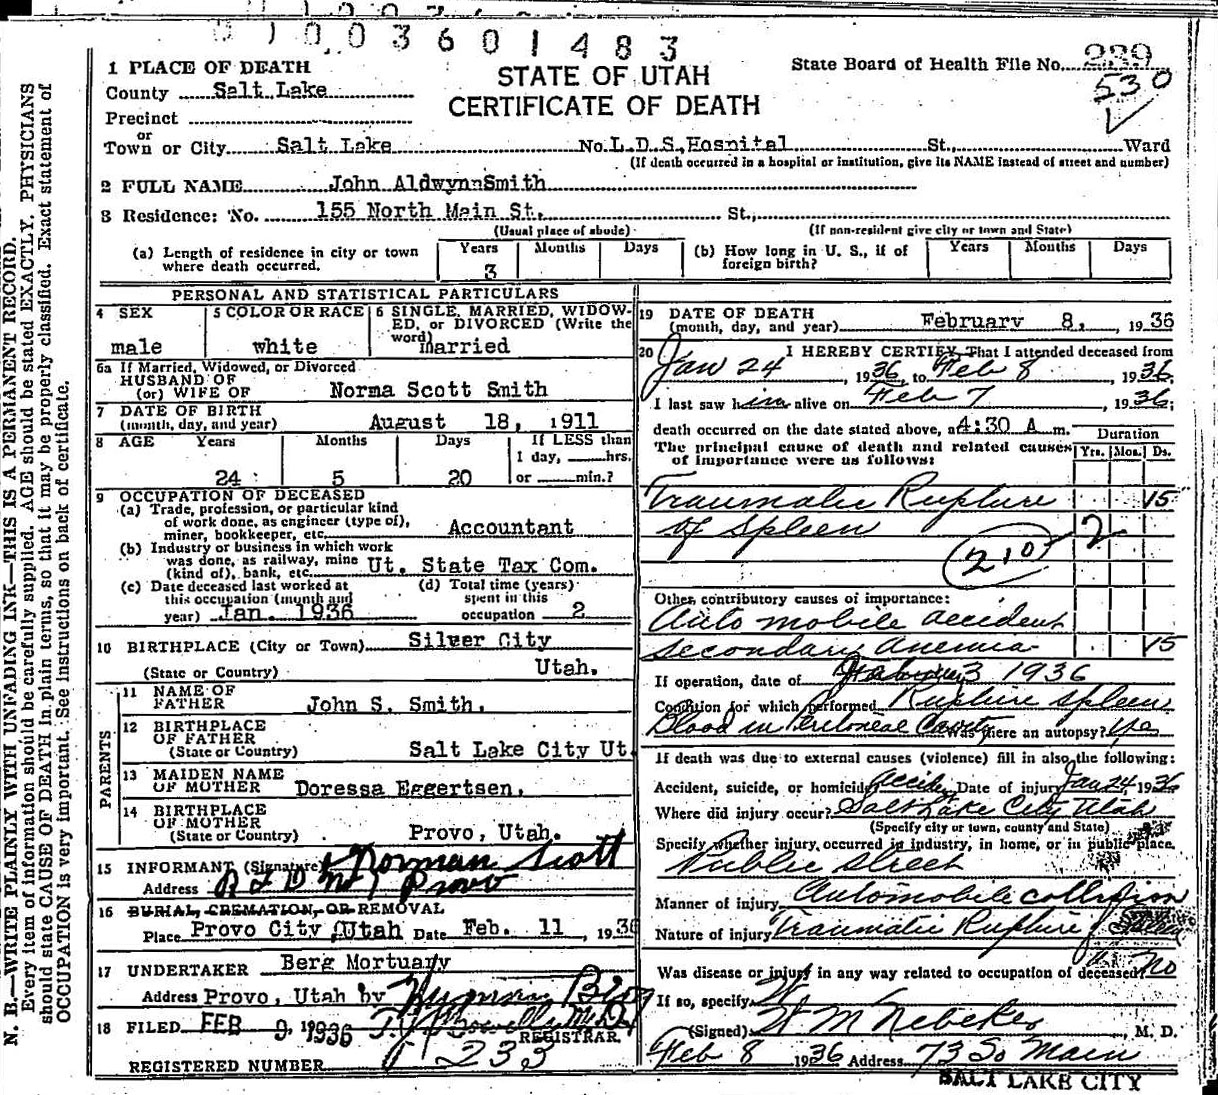 0 1 0 0 3 6 0 1 4 8 3
1 PLACE OF DEATH
County Salt Lake
Precinct
or
Town or City Salt Lake No. L.D.S. Hospital St., Ward
(If death occurred in a hospital or institution, give its NAME instead of street and number)
STATE OF UTAH
CERTIFICATE OF DEATH
State Board of Health File No. 229
530
2 FULL NAME John Aldwyn Smith
3 Residence: No. 155 North Main St. St.,
(Usual place of abode) (If non-resident give city or town and State)
(a) Length of residence in city or town where death occurred. Years 3 Months Days
(b) How long in U. S., if of foreign birth? Years Months Days
PERSONAL AND STATISTICAL PARTICULARS
4 SEX male
5 COLOR OR RACE white
6 SINGLE, MARRIED, WIDOWED, or DIVORCED (Write the word) married
6a If Married, Widowed, or Divorced
HUSBAND OF
(or) WIFE OF Norma Scott Smith
7 DATE OF BIRTH
(month, day, and year) August 18, 1911
8 AGE Years Months Days If LESS than
1 day, hrs.
24 5 20 or min.?
9 OCCUPATION OF DECEASED
(a) Trade, profession, or particular kind
of work done, as engineer (type of),
miner, bookkeeper, etc. Accountant
(b) Industry or business in which work
was done, as railway, mine
(kind of), bank, etc. Ut. State Tax Com.
(c) Date deceased last worked at
this occupation (month and
year) Jan. 1936
(d) Total time (years)
spent in this
occupation 2
10 BIRTHPLACE (City or Town) Silver City
(State or Country) Utah.
PARENTS
11 NAME OF
FATHER John S. Smith.
12 BIRTHPLACE
OF FATHER
(State or Country) Salt Lake City Ut.
13 MAIDEN NAME
OF MOTHER Doressa Eggertsen.
14 BIRTHPLACE
OF MOTHER
(State or Country) Provo, Utah.
15 INFORMANT (Signature) Norman Scott
Address R F D No 1 Provo
16 BURIAL, CREMATION, OR REMOVAL
Place Provo City, Utah Date Feb. 11, 1936
17 UNDERTAKER Berg Mortuary
Address Provo, Utah by
18 FILED FEB 9, 1936
REGISTRAR
REGISTERED NUMBER 233
19 DATE OF DEATH
(month, day, and year) February 8, 1936
20 I HEREBY CERTIFY, That I attended deceased from
Jan 24, 1936, to Feb 8 1936,
I last saw him alive on Feb 7, 1936;
death occurred on the date stated above, at 4:30 A m.
The principal cause of death and related causes
of importance were as follows:
Duration
Yrs. Mos. Ds.
Traumatic Rupture 15
of Spleen 2
210
Other contributory causes of importance:
Automobile accident
Secondary Anemia 15
If operation, date of 3 1936
Condition for which performed Rupture Spleen
Blood in Peritoneal Cavity Was there an autopsy? yes
If death was due to external causes (violence) fill in also the following:
Accident, suicide, or homicide Accident Date of injury Jan 24 1936
Where did injury occur? Salt Lake City Utah
(Specify city or town, county and State)
Specify whether injury occurred in industry, in home, or in public place.
Public Street
Manner of injury Automobile collision
Nature of injury Traumatic Rupture of Spleen
Was disease or injury in any way related to occupation of deceased? no
If so, specify
(Signed) W M Nebeker, M. D.
Feb 8 1936 Address 73 So Main
SALT LAKE CITY
N. B.—WRITE PLAINLY WITH UNFADING INK—THIS IS A PERMANENT RECORD.
Every item of information should be carefully supplied. AGE should be stated EXACTLY. PHYSICIANS
should state CAUSE OF DEATH in plain terms, so that it may be properly classified. Exact statement of
OCCUPATION is very important. See instructions on back of certificate.